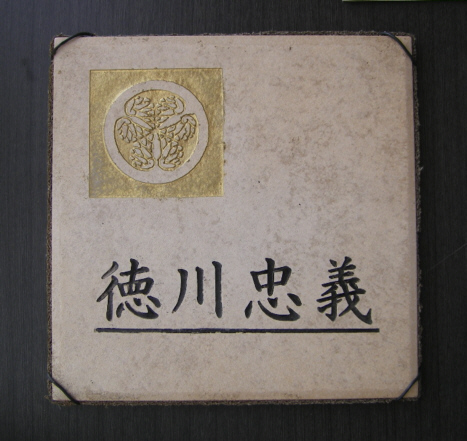 徳川忠義